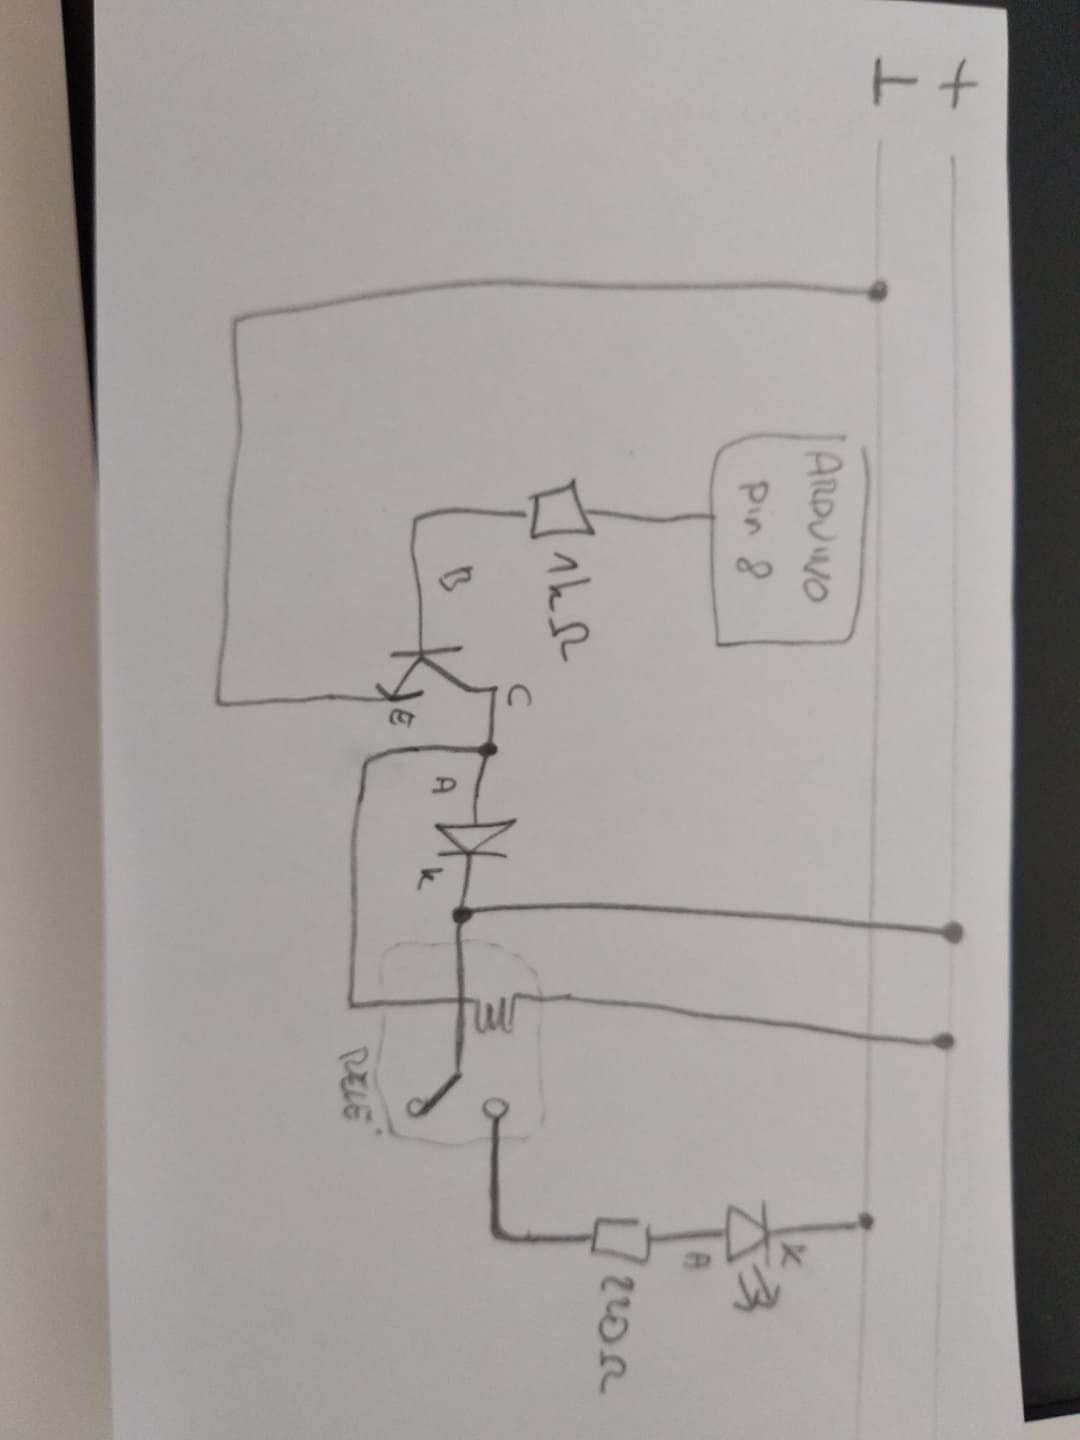 +
⊥
ARDUINO
pin 8
1kΩ
B
C
E
A
K
RELE'
220Ω
A
K